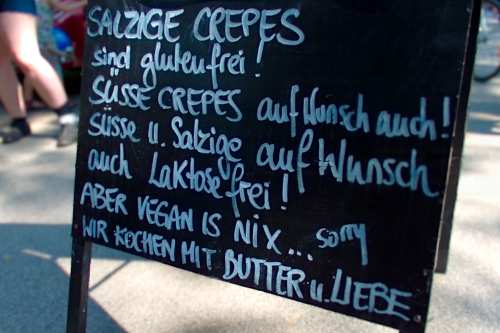 SALZIGE CREPES
sind glutenfrei!
SÜSSE CREPES auf Wunsch auch!
Süsse u. Salzige auf Wunsch
auch Laktosefrei!
ABER VEGAN IS NIX... sorry
WIR KOCHEN MIT BUTTER u. LIEBE